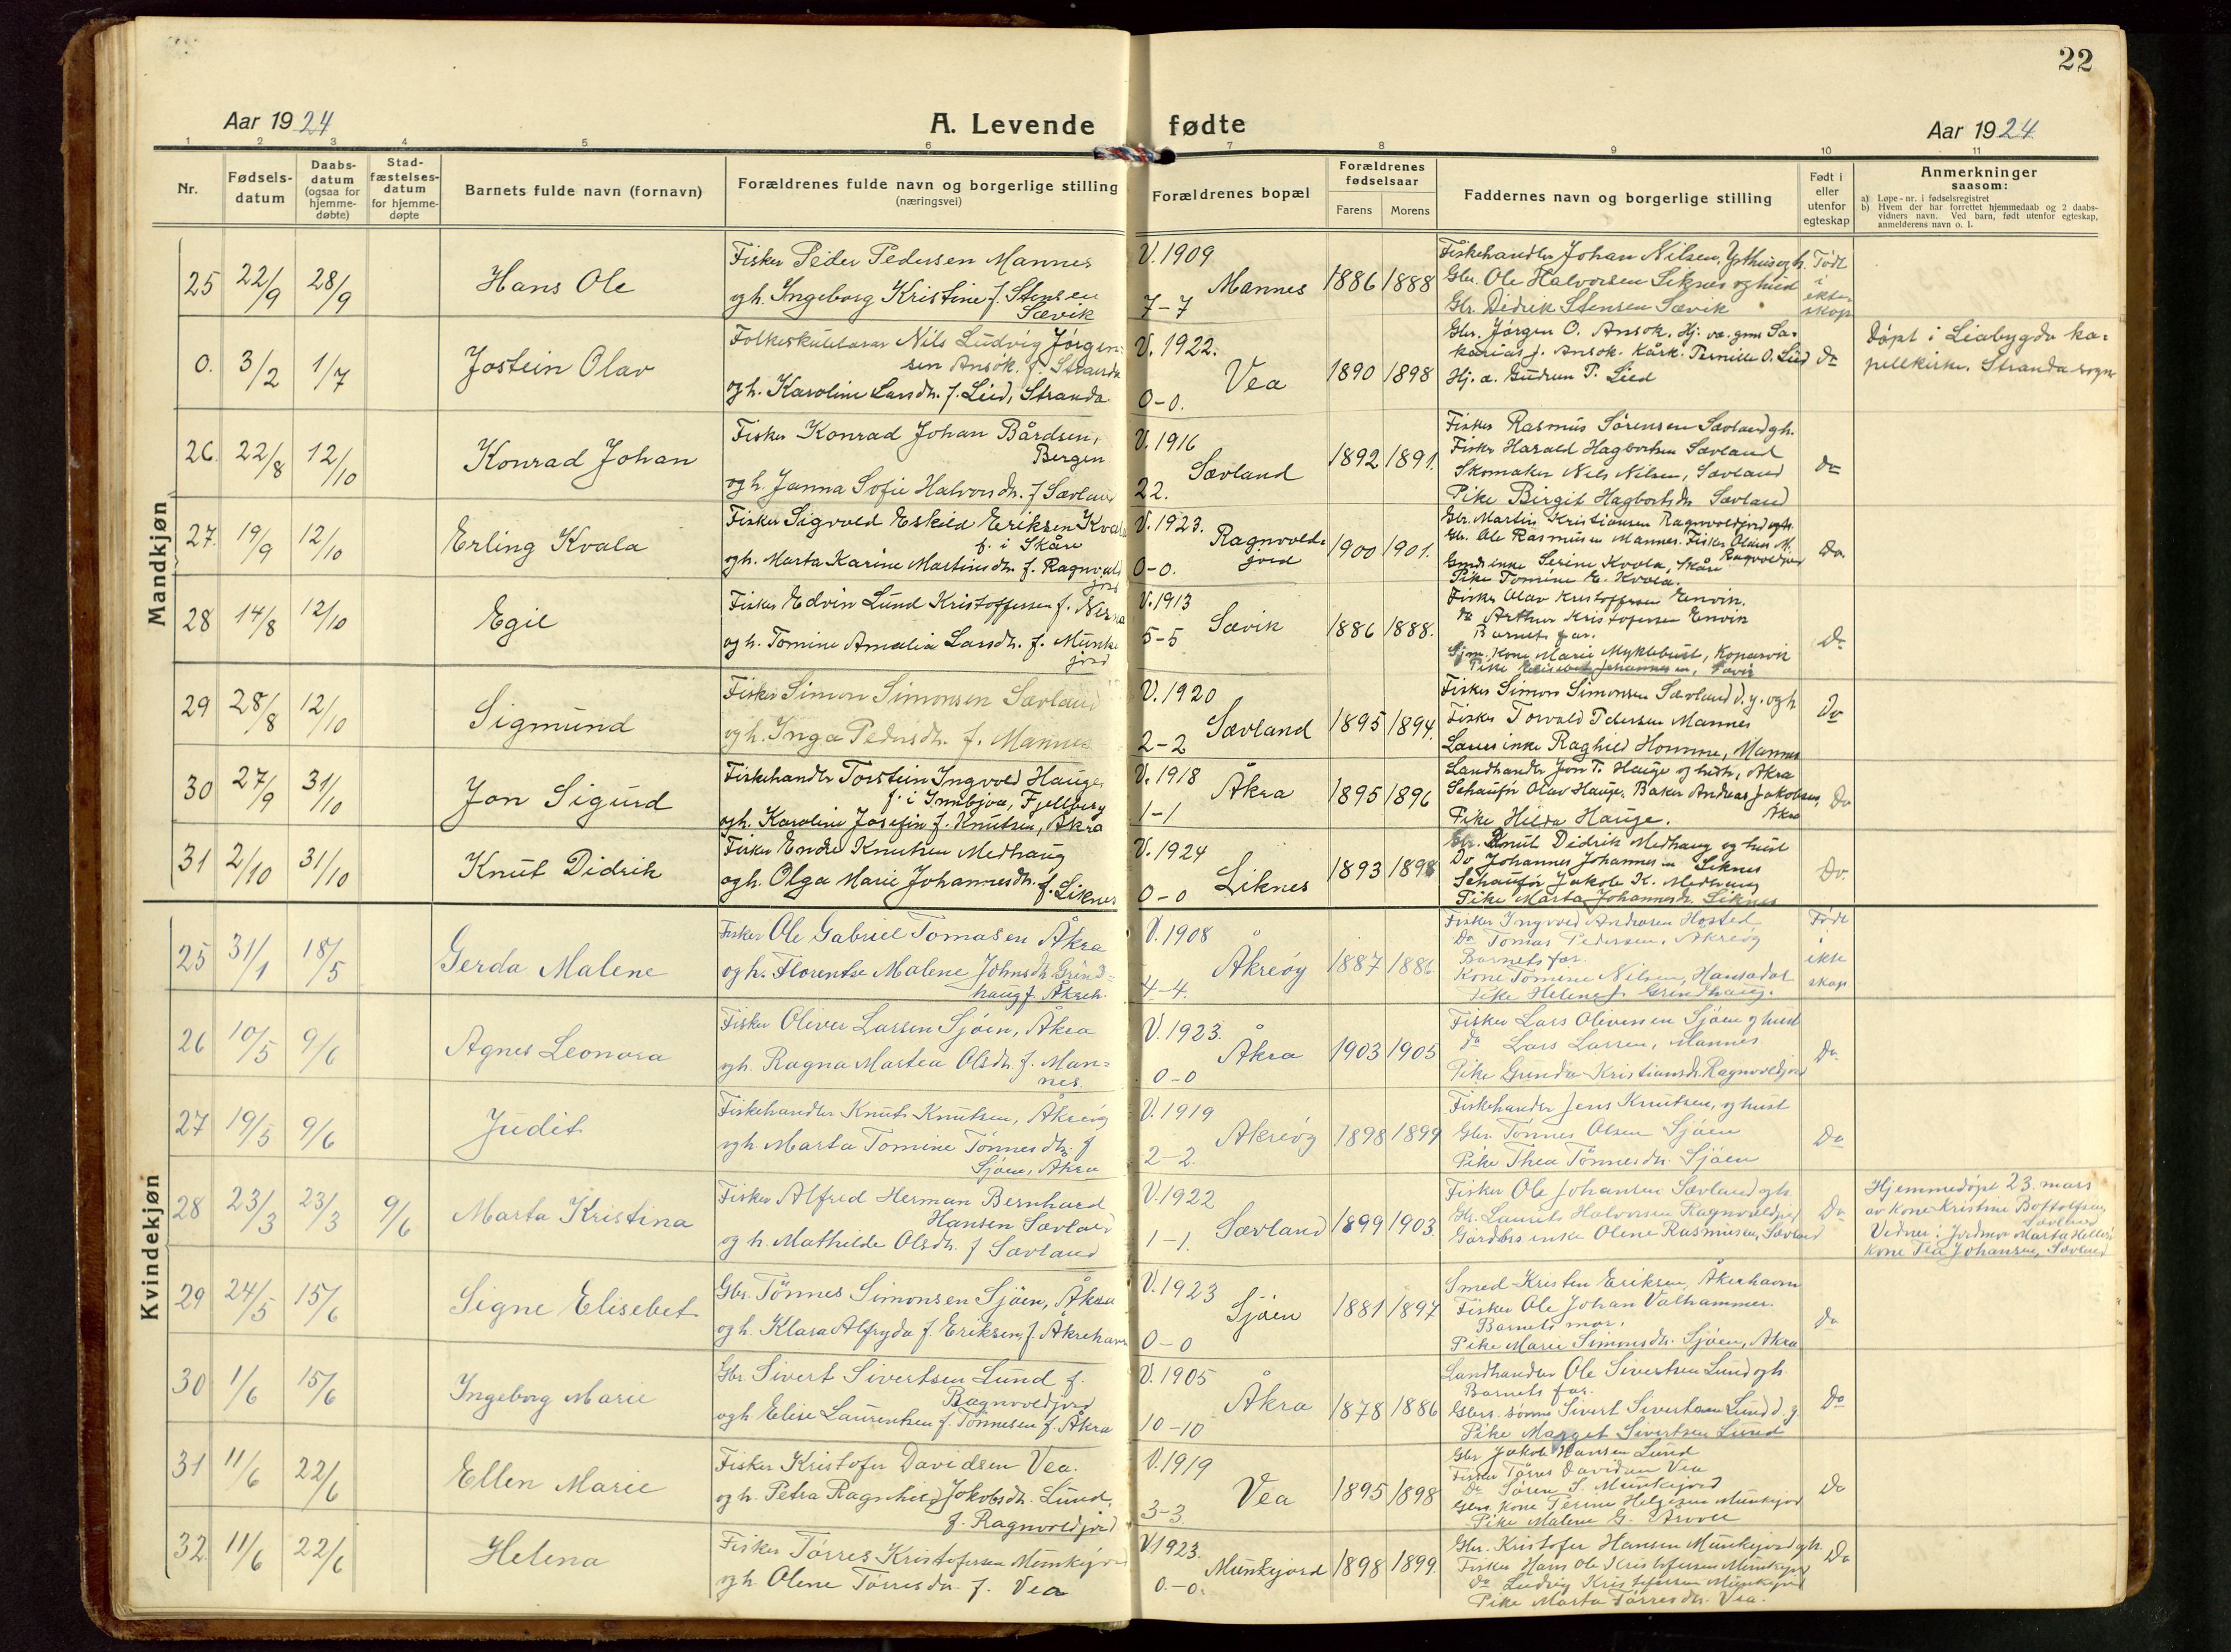 22
Aar 1924
A. Levende fødte
Aar 1924.
1 2 3 4 5 6 7 8 9 10 11
Nr.
Fødsels-
datum
Daabs-
datum
(ogsaa for
hjemme-
døbte)
Stad-
fæstelses-
datum
for hjemme-
døpte
Barnets fulde navn (fornavn)
Forældrenes fulde navn og borgerlige stilling
(næringsvei)
Forældrenes bopæl
Forældrenes
fødselsaar
Farens
Morens
Faddernes navn og borgerlige stilling
Født i
eller
utenfor
egteskap
Anmerkninger
saasom:
a) Løpe-nr. i fødselsregistret
b) Hvem der har forrettet hjemmedaab og 2 daabs-
vidners navn. Ved barn, født utenfor egteskap,
anmelderens navn o. l.
Mandkjøn
25 22/9 28/9
Hans Ole
Fisker Peder Pedersen Mannes
og h. Ingeborg Kristine f. Stensen
Sævik
V. 1909
Mannes
7-7
1886 1888
Fiskehandler Johan Nilsen, Ythus og h.
Gbr. Ole Halvorsen Liknes og hust
Gbr. Didrik Stensen Sævik
Født
i
ekte-
skap
0. 3/2 1/7
Jostein Olav
Folkeskulelærar Nils Ludvig Jørgen-
sen Ansok. f. Stranda
og h. Karoline Larsdh. f. Lied, Stranda
V. 1922.
Vea
0-0.
1890 1898
Gbr. Jørgen O. Ansok. Hj. væ. gm Sa-
karias J. Ansok. Kårk. Pernille O. Lied
Hj. a. Gudrun P. Lied
Do
Døpt i Liabygda ka-
pellkirke. Stranda sogn
26. 22/8 12/10
Konrad Johan
Fisker Konrad Johan Bårdsen,
Bergen
og h. Janna Sofie Halvorsdh. f Sævland
V. 1916
Sævland
22.
1892 1891.
Fisker Rasmus Sørensen Sævland og h.
Fisker Harald Hagbortsen Sævland
Skomaker Nils Nilsen, Sævland
Pike Birgit Hagbortsdh Sævland
Do
27. 19/9 12/10
Erling Kvala
Fisker Sigvald Eskild Eriksen Kvala
f. i Skåre
og h. Marta Karine Martinsdh. f. Ragnvald
jord
V. 1923.
Ragnvold-
jord
0-0.
1900 1901.
Gbr. Martin Kristiansen Ragnvoldjord og h.
Gbr. Ole Rasmusen Mannes. Fisker Olaus M.
Ragnvoldjord
Gmds enke Serine Kvala, Skåre
Pike Tomine E. Kvala.
Do
28 14/8 12/10
Egil
Fisker Edvin Lund Kristoffersen f.
og h. Tomine Amalia Larsdh. f. Munke
jord
V. 1913
Sævik
5-5
1886 1888.
Fisker Olav Kristoffersen
Do Arthur Kristofersen
Barnets far.
Sjm. Kone Marie Myklebust, Kopervik
Pike Johannesen, Sævik
Do
29 28/8 12/10
Sigmund
Fisker Simon Simonsen Sævland
og h. Inga Pedersdh. f. Mannes
V. 1920
Sævland
2-2
1895 1894.
Fisker Simon Simonsen Sævland d. y. og h
Fisker Torvald Pedersen Mannes
enke Raghild Homme, Mannes
Do
30 27/9 31/10
Jon Sigurd
Fiskehandler Torstein Ingvold Hauge
f. i Imbjoa, Fjellberg
og h. Karoline Josefin f. Knutsen, Åkra
V. 1918
Åkra
1-1
1895 1896
Landhandler Jon T. Hauge og hust, Åkra
Schaufør Olav Hauge. Baker Andreas Jakobsen,
Åkra
Pike Hilda Hauge.
Do
31 2/10 31/10
Knut Didrik
Fisker Endre Knutsen Medhaug
og h. Olga Marie Johannesdh. f. Liknes
V. 1924
Liknes
0-0
1893 1898
Gbr. Knut Didrik Medhaug og hust
Do Johannes Johannesen Liknes
Schaufør Jakob K. Medhaug
Pike Marta Johannesdh. Liknes
Do.
Kvindekjøn
25 31/1 18/5
Gerda Malene
Fisker Ole Gabriel Tomasen Åkra
og h. Florentse Malene Johnsdh Grind-
haug f. Åkreh.
V. 1908
Åkreøy
4-4.
1887 1886.
Fisker Ingvald Andreasen Hosted,
Do Tomas Pedersen, Åkreøy
Barnets far.
Kone Tomine Nilsen, Hansadal
Pike Helene J. Grindhaug.
Født
i
ekte
skap
26 10/5 9/6
Agnes Leonora
Fisker Oliver Larsen Sjøen, Åkra
og h. Ragna Martea Olsdh. f. Man-
nes.
V. 1923.
Åkra
0-0
1903 1905
Fisker Lars Oliversen Sjøen og hust
do Lars Larsen, Mannes
Pike Gunda Kristiansdh. Ragnvoldjord
Do
27 19/5 9/6
Judit
Fiskehandler Knut Knutsen, Åkreøy
og h. Marta Tomine Tønnesdh. f
Sjøen, Åkra
V. 1919
Åkreøy
2-2.
1898 1899
Fiskehandler Jens Knutsen, og hust
Gbr. Tønnes Olsen Sjøen
Pike Thea Tønnesdh. Sjøen
Do
28 23/3 23/3 9/6
Marta Kristina
Fisker Alfred Herman Bernhard
Hansen Sævland
og h. Mathilde Olsdh. f Sævland
V. 1922
Sævland
1-1.
1899 1903.
Fisker Ole Johansen Sævland og h.
Gbr. Laurits Halvorsen Ragnvoldjord
Gårdbrs enke Olene Rasmusen, Sævland
Do
Hjemmedøpt 23. mars
av kone Kristine Bottolfsen,
Sævland
Vidner: Jordmor Marta
kone Tea Johansen, Sævland
29 24/5 15/6
Signe Elisebet
Gbr. Tønnes Simonsen Sjøen, Åkra
og h. Klara Alfryda f. Eriksen, f. Åkrehavn
V. 1923
Sjøen
0-0
1881 1897
Smed Kristen Eriksen, Åkerhavn
Fisker Ole Johan Valhammer.
Barnets mor.
Pike Marie Simonsdh. Sjøen, Åkra
do
30 1/6 15/6
Ingeborg Marie
Gbr. Sivert Sivertsen Lund f.
Ragnvoldjord
og h. Elise Laurentsen f. Tønnesen f. Åkra
V. 1905
Åkra
10-10
1878 1886
Landhandler Ole Sivertsen Lund og h.
Barnets far.
Gbrs. sønn Sivert Sivertsen Lund d. y.
Pike Marget Sivertsen Lund
Do
31 11/6 22/6
Ellen Marie
Fisker Kristofer Davidsen Vea.
og h. Petra Ragnhild Jakobsdh. Lund,
f. Ragnvoldjord
V. 1919
Vea
3-3.
1895 1898
Gbr Jakob Hansen Lund
Fisker Tørres Davidsen Vea
Do Søren S. Munkejord
Gbrs. kone Perine Helgesen Munkejord
Pike Malene G.
Do
32. 11/6 22/6
Helena
Fisker Tørres Kristofersen Munkejord
og h. Olene Tørresdh. f. Vea
V 1923.
Munkejord
0.-0.
1898 1899.
Gbr. Kristofer Hansen Munkejord og h.
Fisker Hans Ole Kristofersen Munkejord
Do Ludvig Kristofersen Munkejord
Pike Marta Tørresdh. Vea.
Do